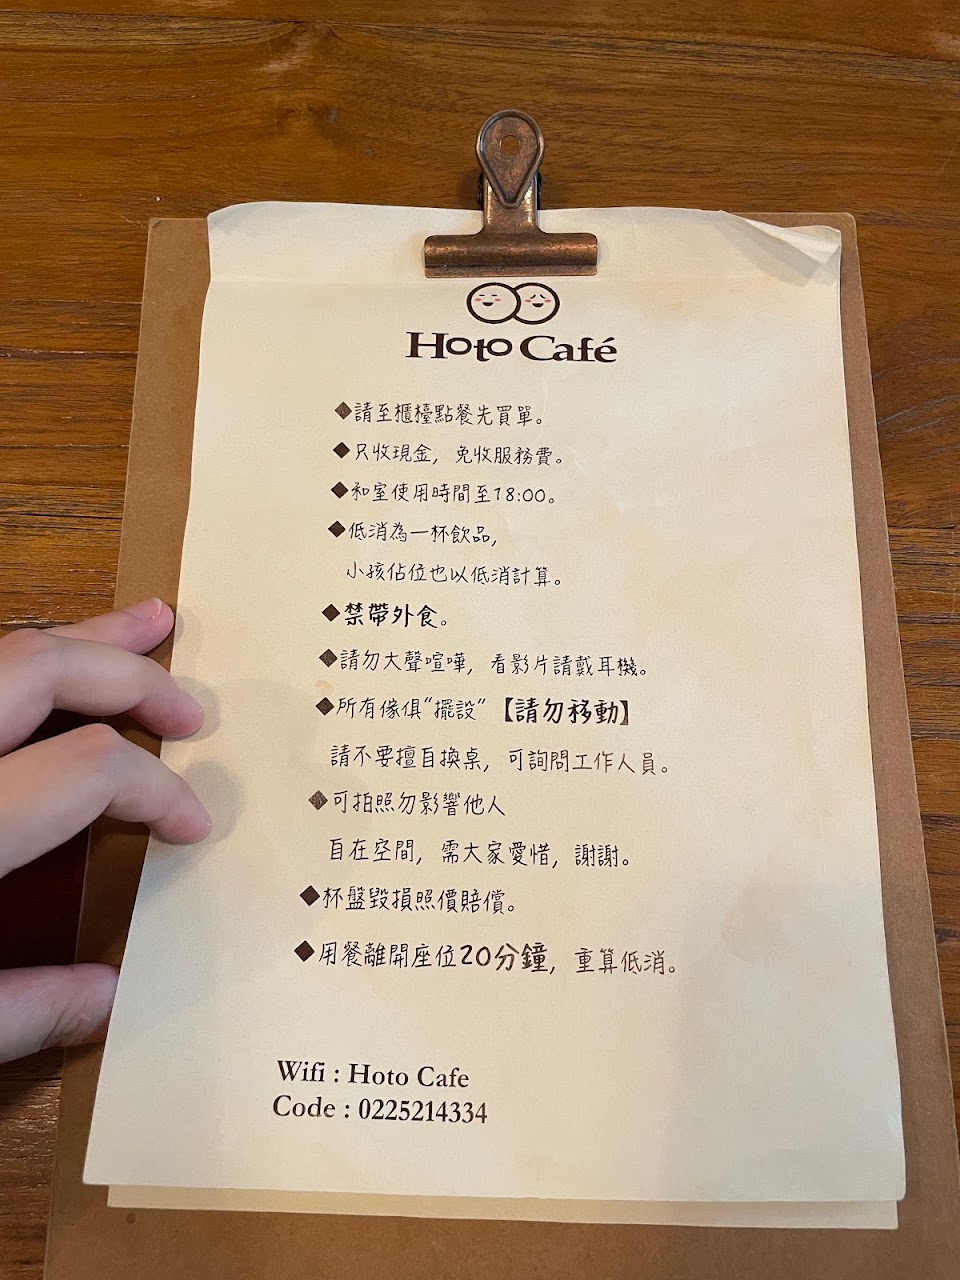 Hoto Café
◆請至櫃檯點餐先買單。
◆只收現金，免收服務費。
◆和室使用時間至18:00。
◆低消為一杯飲品，
小孩佔位也以低消計算。
◆禁帶外食。
◆請勿大聲喧嘩，看影片請戴耳機。
◆所有傢俱“擺設”【請勿移動】
請不要擅自換桌，可詢問工作人員。
◆可拍照勿影響他人
自在空間，需大家愛惜，謝謝。
◆杯盤毀損照價賠償。
◆用餐離開座位20分鐘，重算低消。
Wifi : Hoto Cafe
Code : 0225214334